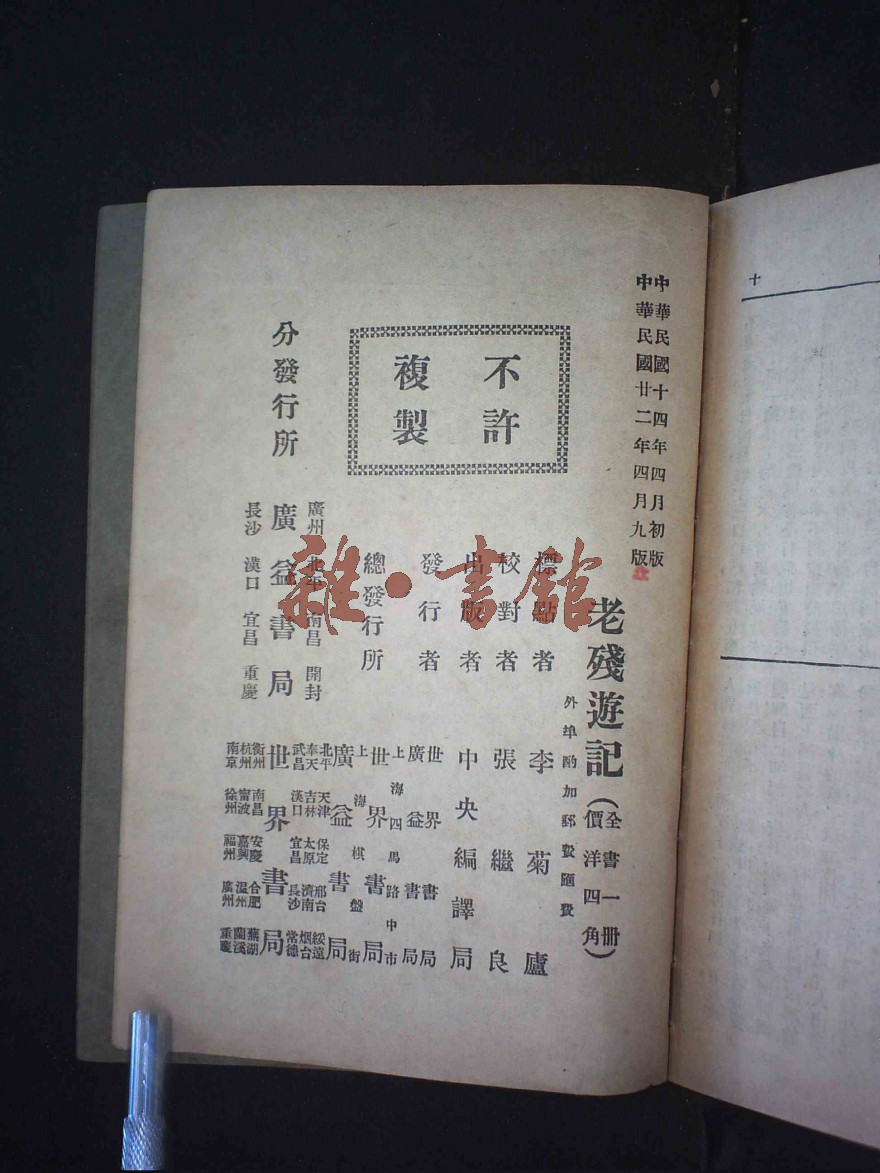 中華民國十四年四月初版
中華民國廿二年四月九版
老殘遊記
(全書一册
價洋四角)
外埠酌加郵費匯費
標點者 李菊廬
校對者 張繼良
出版者 中央編譯局
發行者 世界書局
廣益書局
總發行所
上海四馬路中市
世界書局
上海棋盤街
廣益書局
不許
複製
分發行所
廣州 北平 南昌 開封
廣益書局
長沙 漢口 宜昌 重慶
北平 天津 保定 邢台 綏遠
奉天 吉林 太原 濟南 烟台
武昌 漢口 宜昌 長沙 常德
世界書局
衢州 南昌 安慶 合肥 蕪湖
杭州 甯波 嘉興 溫州 蘭溪
南京 徐州 福州 廣州 重慶
雜·書館
十